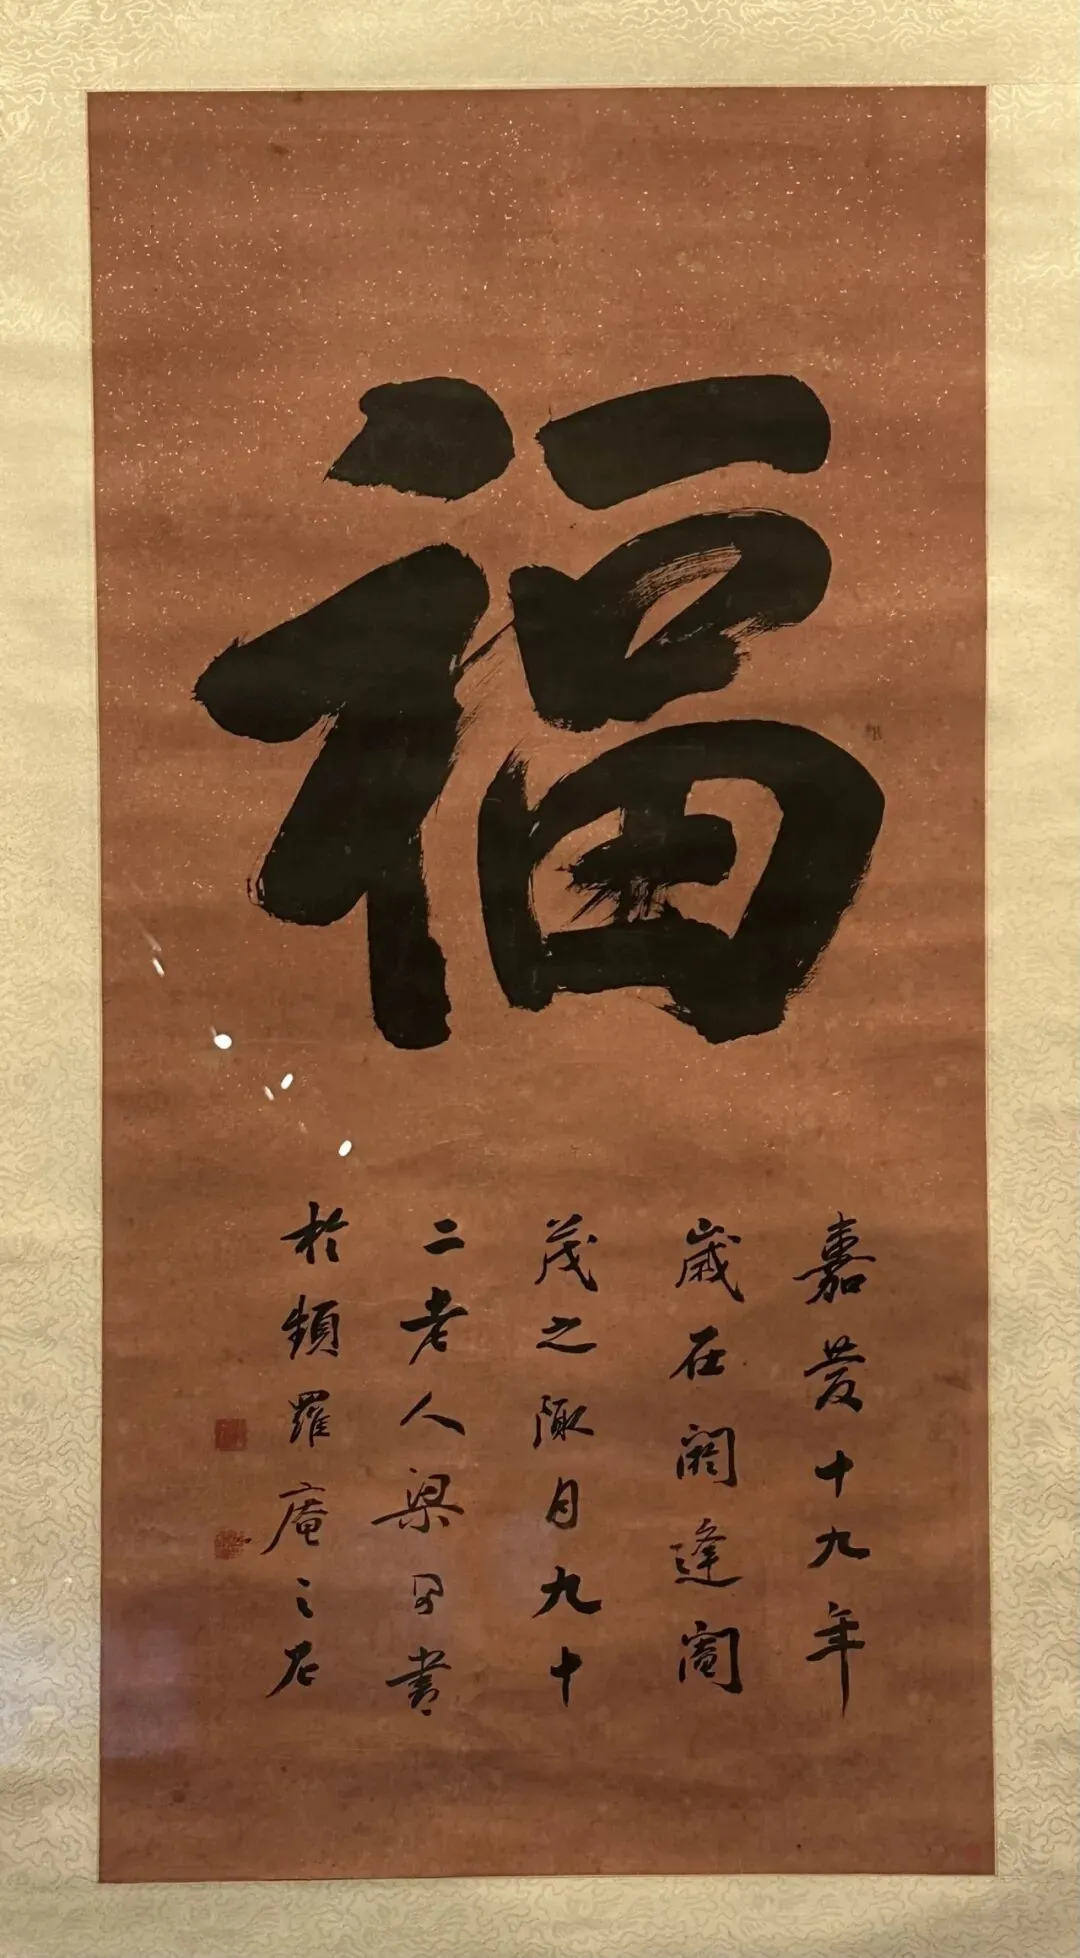 福
嘉慶十九年
歲在閼逢閹
茂之陬月九十
二老人梁同書
於頻羅庵之